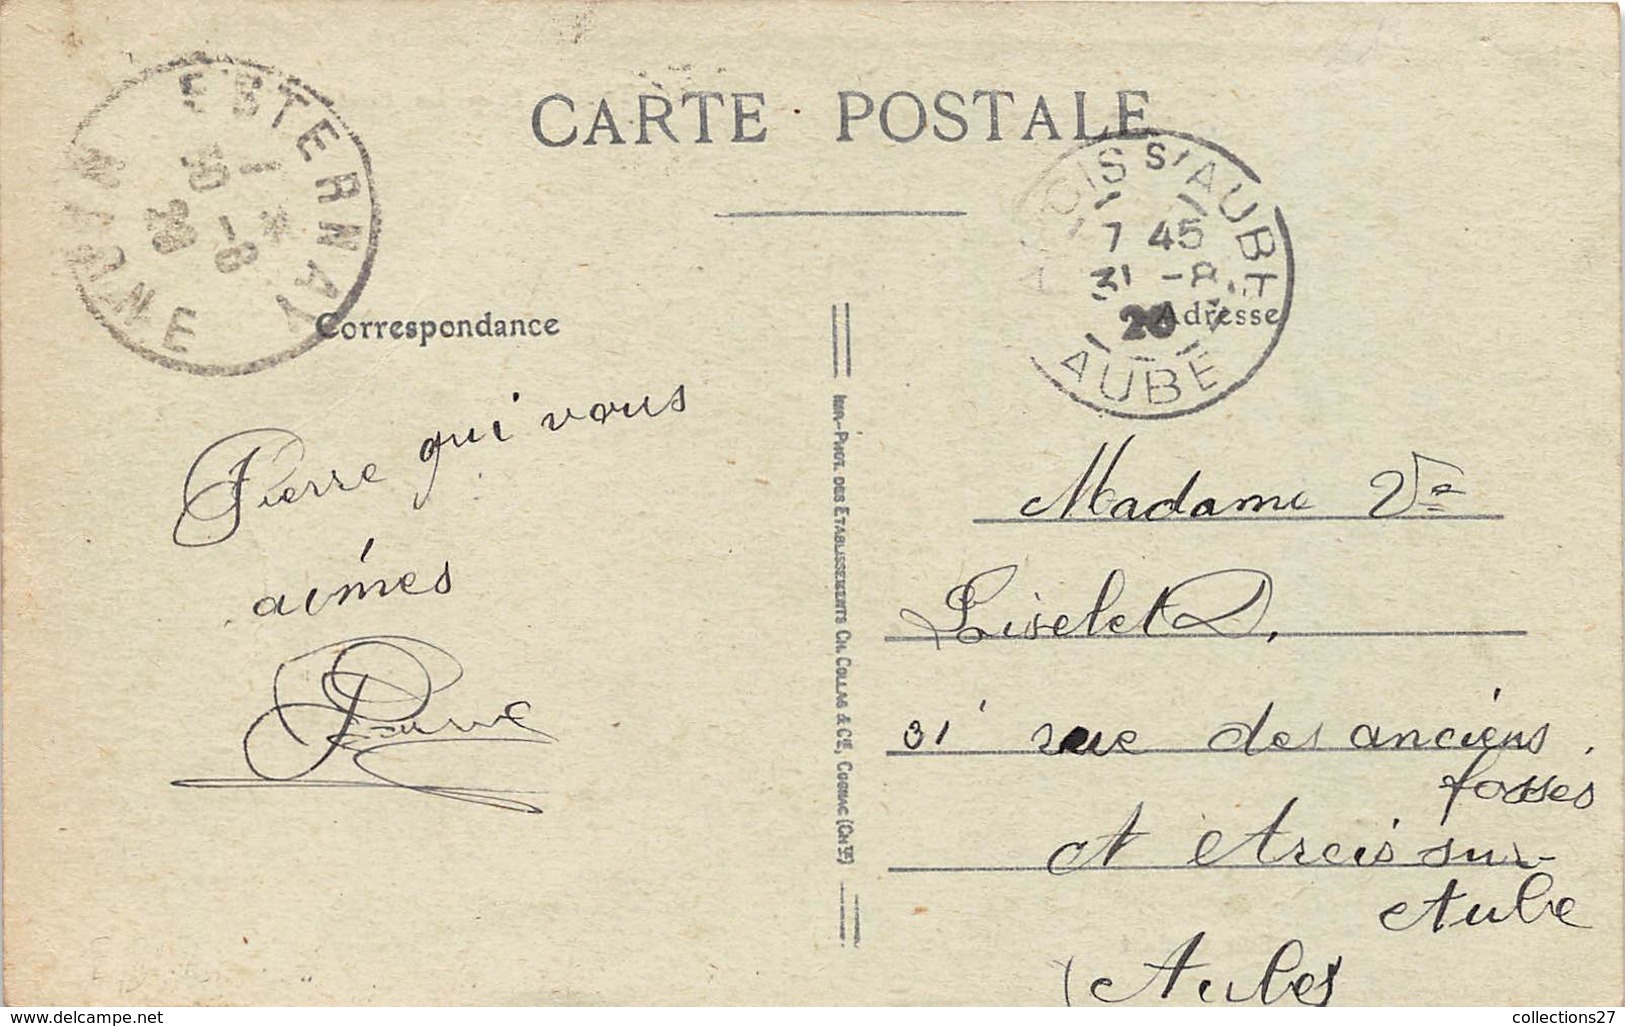 CARTE POSTALE
ESTERNAY
MARNE
30 -8
ARCIS S/ AUBE
7 45
31 -8
AUBE
Correspondance
Adresse
Pierre qui vous
aimes
Pierre
IMP.-PHOT. DES ETABLISSEMENTS CH. COLLAS & CIE, COGNAC (CH TE)
Madame Vve
31 rue des anciens
fossés
A Arcis sur
Aube
(Aube)
collections27
www.delcampe.net